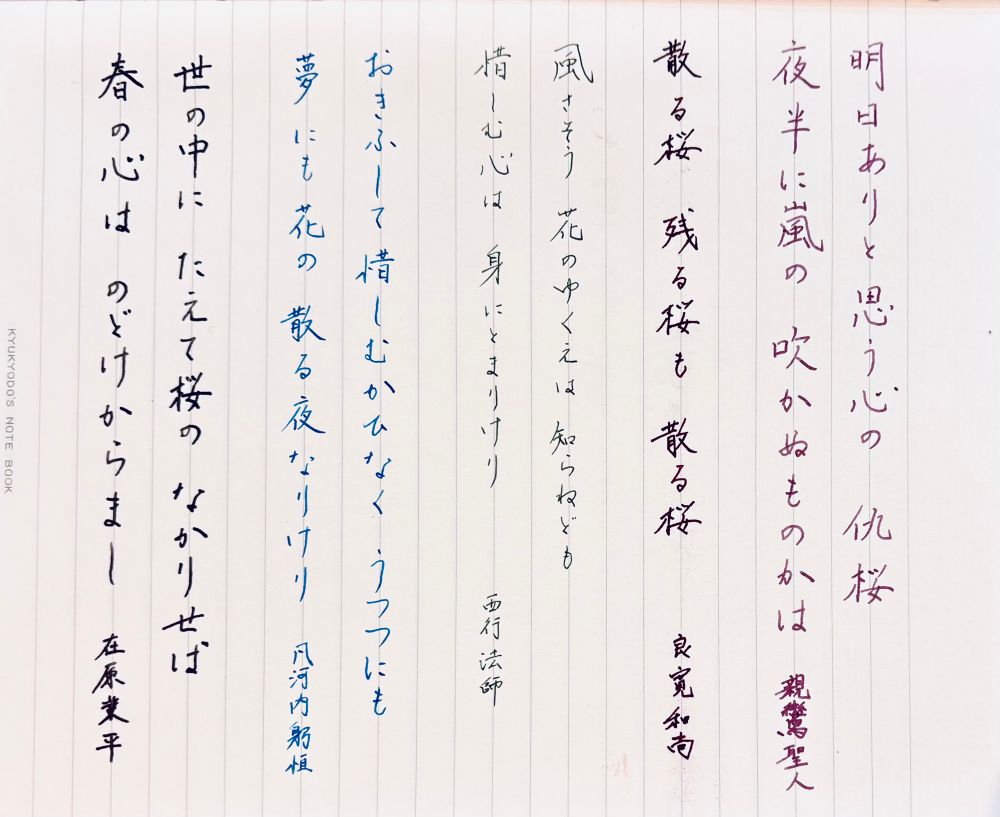 明日ありと思う心の 仇桜
夜半に嵐の 吹かぬものかは 親鸞聖人
散る桜 残る桜も 散る桜 良寛和尚
風さそう 花のゆくえは 知らねども
惜しむ心は 身にとまりけり 西行法師
おきふして惜しむかひなく うつつにも
夢にも花の 散る夜なりけり 凡河内躬恒
世の中に たえて桜の なかりせば
春の心は のどけからまし 在原業平
KYUKYODO'S NOTE BOOK